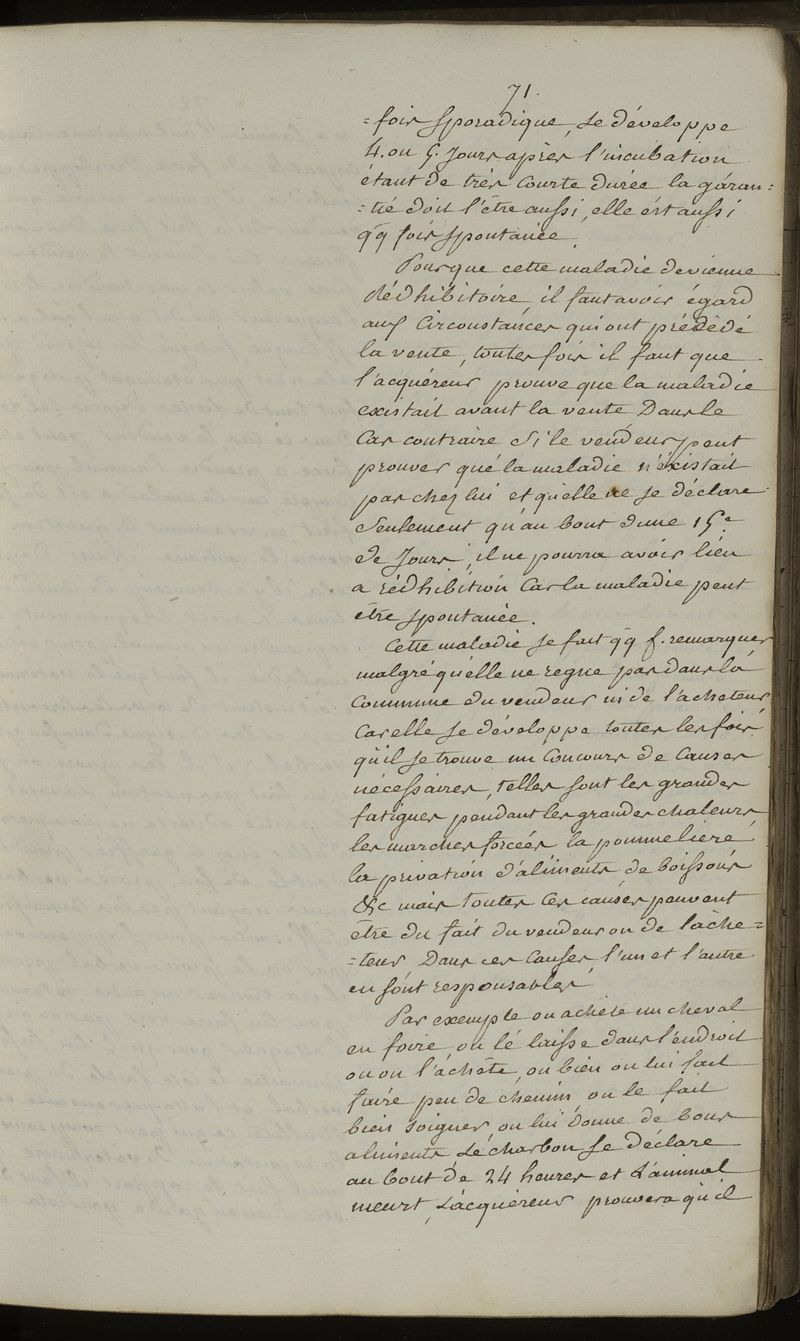 71.
=fois sporadique, se développe
4. ou 5. Jours après l'incubation
étant de très courte durée la gáran=
=tié doit l'être aussi, elle ést aussi
qq fois spontanée.
Pour que cette maladie devienne
rédhibitoire il faut avoir égard
aux Circonstances qui ont précédé
la vente, toutes fois il faut que
l'acquéreur prouve que la maladie
existait avant la vente Dans le
Cas contraire Si le vendeur peut
prouver qué la maladie n'éxistait
pas chez lui et qu'elle ne se déclare
Seulement qu'au bout d'une 15.e
de Jours, il ne pourra avoir lieu
a rédhibition Car la maladie peut
être spontanée.
Cette maladie se fait qq f. remarquer
malgré qu'elle ne regne pas dans la
Commune du vendeur ni de l'acheteur
Car elle se développe toutes les fois
qu'il se trouve un Concours de Causes
nécessaires, telles sont les grandes
fatigues pendant les grandes chaleurs
les marches forcées la pommelière
la privation d'aliments de boissons
&c mais toutes Ces causes peuvent
être du fait du vendeur ou de l'ache=
=teur Dans ces Causes l'un et l'autre
en sont responsables
Par exemple on achète un cheval
en foire, on lé laisse dans l'endroit
ou on l'achète, ou bien on lui fait
faire peu de chemin, on le fait
bien soigner, on lui Donne de bons
aliments Le charbon se déclare
au bout de 24 heures et L'animal
meurt, L'acquéreur prouvera qu'il